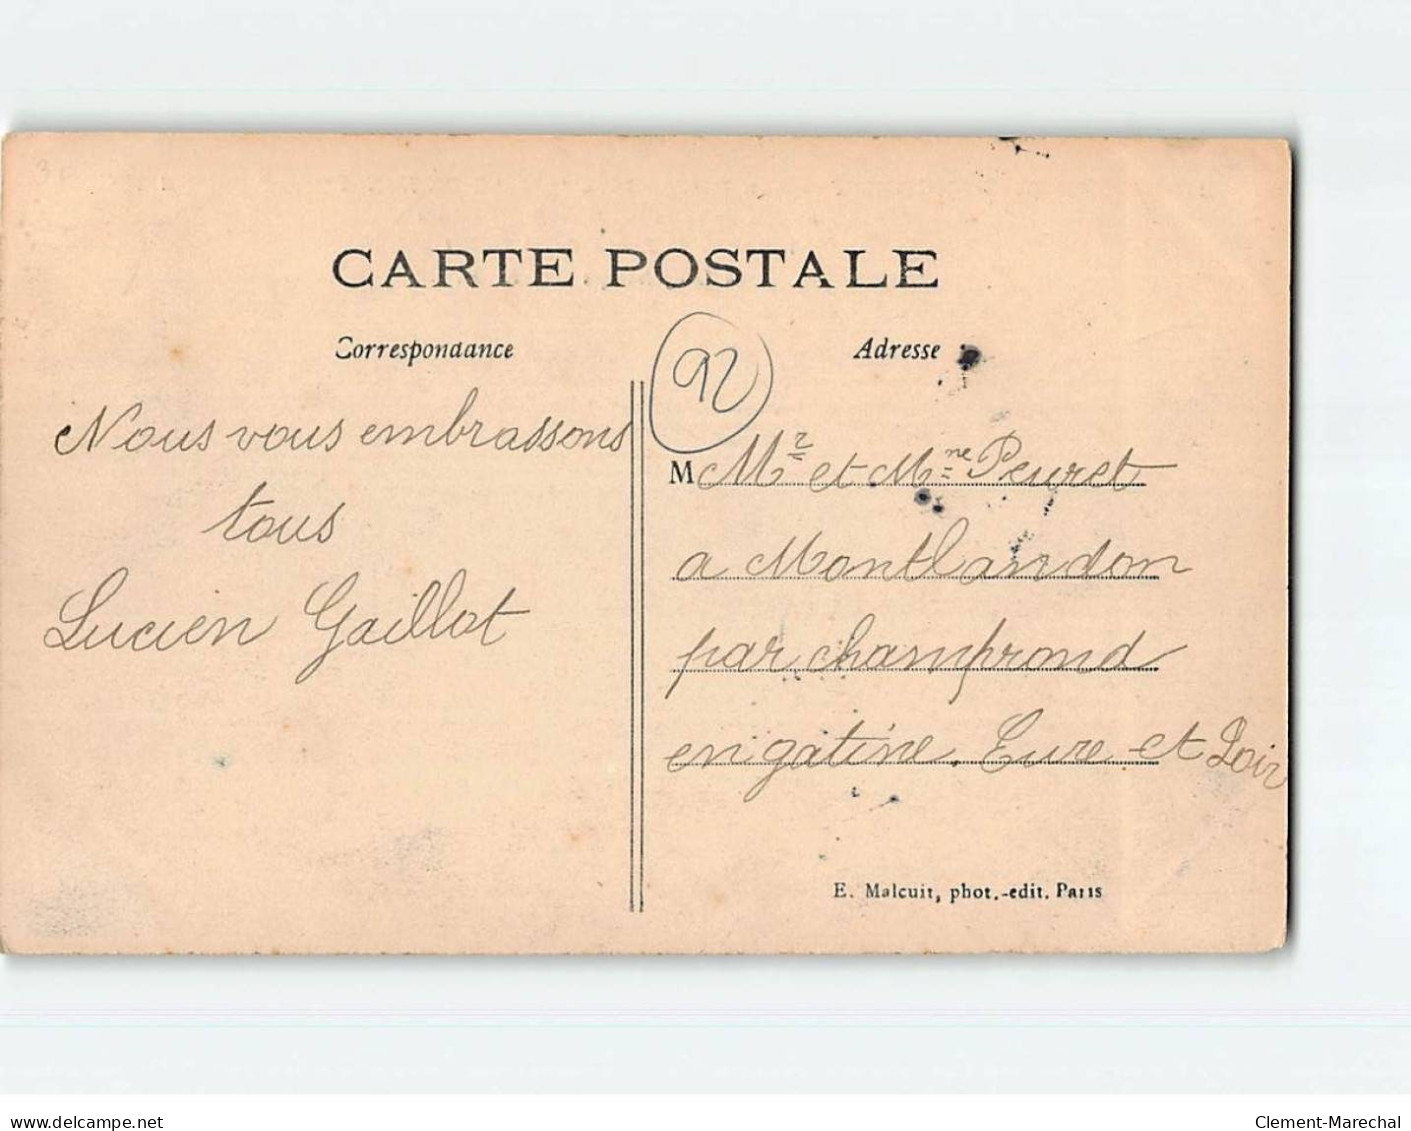 CARTE POSTALE
Correspondance
Adresse
92
Nous vous embrassons
tous
Lucien Gaillot
M Mr et Mme Peuret
a Montlandon
par champrond
en gatine. Eure et Loir
E. Malcuit, phot.-edit. Paris
www.delcampe.net
Clement-Marechal